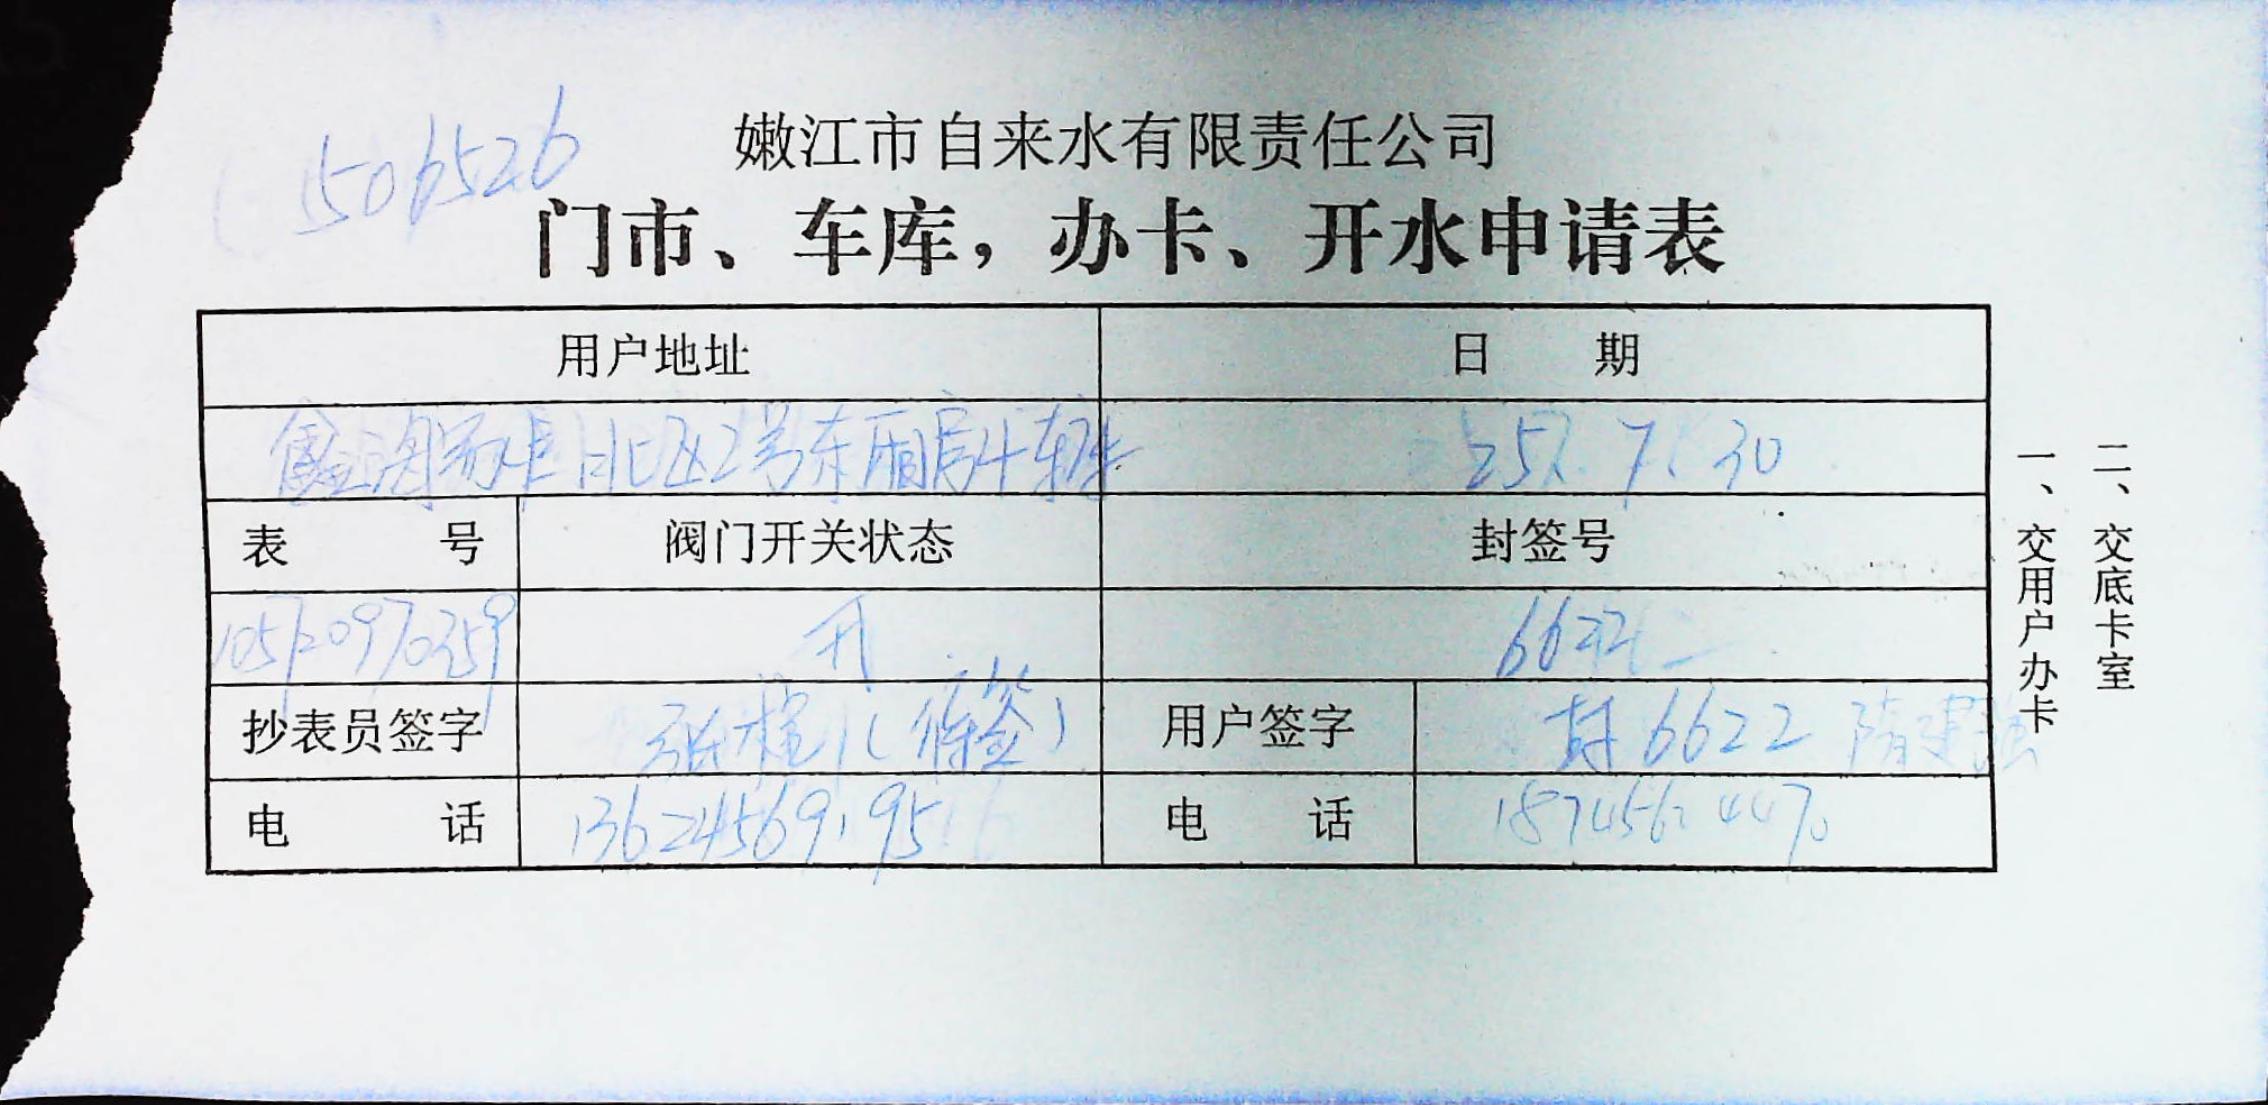 1506526
嫩江市自来水有限责任公司
门市、车库，办卡、开水申请表
用户地址 日 期
北区2号东厢房4车库 25. 7. 30
表 号 阀门开关状态 封签号
开 6622
抄表员签字 用户签字 封6622 隋建强
电 话 13624569195 电 话
一、交用户办卡
二、交底卡室